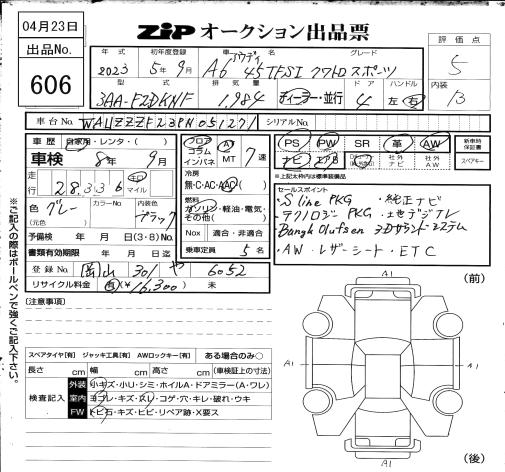 04月23日
出品No.
606
ZIP オークション出品票
年式 初年度登録 車名 グレード
2023 5年9月 アウディ A6 45TFSI クワトロ スポーツ
型式 排気量 ドア ハンドル
3AA-F2DKNF 1,984 ディーラー・並行 4 左・右
評価点
5
内装
B
車台No. WAUZZZF23PN051271 シリアルNo.
車歴 自家用・レンタ・( )
車検 8年 9月
走行 28,336 キロ マイル
色 グレー カラーNo. 内装色 ブラック
(元色)
予備検 年 月 日(3・8)No.
書類有効期限 年 月 日迄
登録No. 岡山 301 や 6052
リサイクル料金 有(¥16,300) 未
フロア コラム インパネ
AT MT 7速
冷房
無・C・AC・AAC
燃料
ガソリン・軽油・電気・その他( )
Nox 適合・非適合
乗車定員 5名
PS PW SR 革 AW
ナビ エアB 社外ナビ 社外AW
新車時保証書
スペアキー
↑上記太枠内は標準装備品
セールスポイント
・S line PKG ・純正ナビ
・テクノロジー PKG ・地デジTV
・Bang & Olufsen 3Dサウンドシステム
・AW・レザーシート・ETC
※ご記入の際はボールペンで強くご記入下さい。
(注意事項)
スペアタイヤ[有] ジャッキ工具[有] AWロックキー[有] ある場合のみ○
長さ cm 幅 cm 高さ cm (車検証上の寸法)
検査記入
外装 小キズ・小U・シミ・ホイルA・ドアミラー(A・ワレ)
室内 ヨゴレ・キズ・スレ・コゲ・穴・キレ・破れ・ウキ
FW トビ石・キズ・ヒビ・リペア跡・X要ス
(前)
A1
A1
A1
A1
(後)